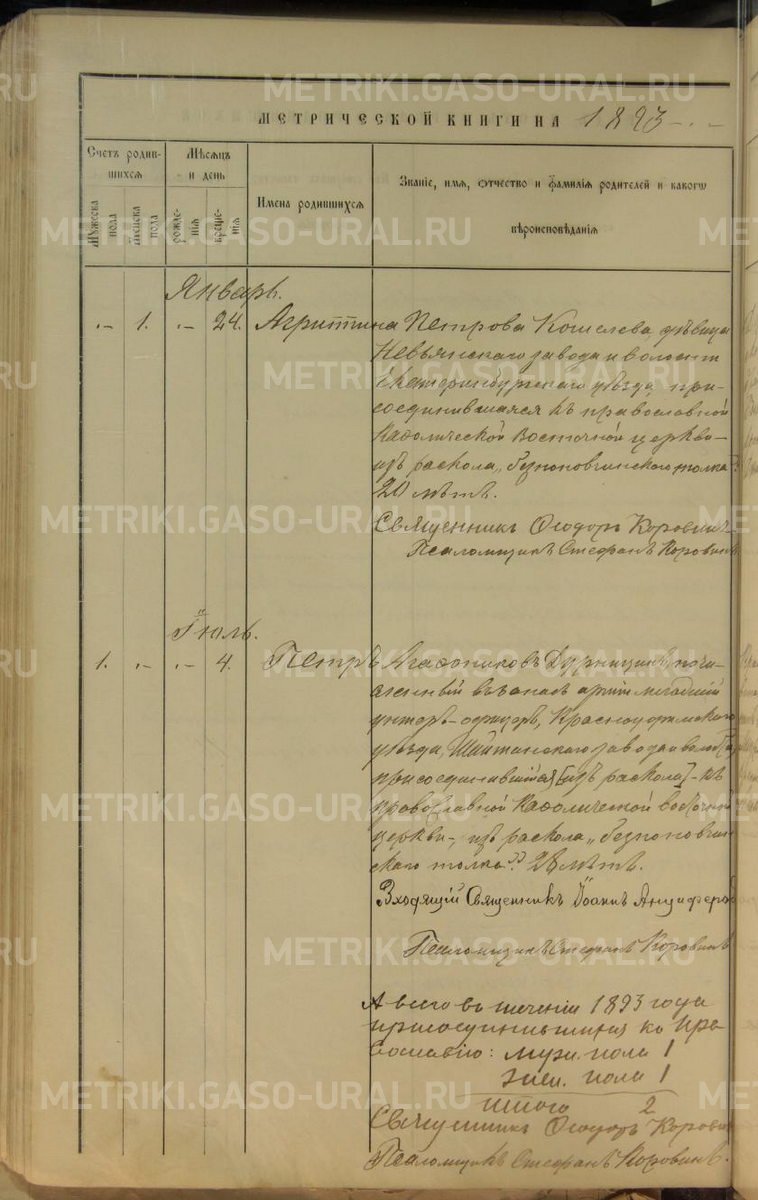 МЕТРИЧЕСКОЙ КНИГИ НА 1893
Счетъ родив-
шихся
Мѣсяцъ
и день
Имена родившихся
Званіе, имя, отчество и фамилія родителей и какого
вѣроисповѣданія
Мужеска
пола
Женска
пола
рожде-
нія
креще-
нія
Январь.
"- 1. "- 24. Агриппина Петрова Кошелева, дѣвица
Невьянскаго завода и волости
Екатеринбургскаго уѣзда, при-
соединившаяся къ православной
Каѳолической Восточной церкви-
изъ раскола „безпоповщинскаго толка"
20 лѣтъ.
Священникъ Ѳеодоръ Коровинъ
Псаломщикъ Стефанъ Коровинъ
Іюль.
1. "- "- 4. Петръ Агаѳониковъ Дурницинъ, почи-
сленный въ запасъ арміи младшій
унтеръ-офицеръ, Красноуфимскаго
уѣзда, Шайтанскаго завода и волости
присоединившійся [изъ раскола] - къ
православной Каѳолической восточной
церкви-, изъ раскола „безпоповщин-
скаго толка". 28 лѣтъ.
Входящій Священникъ Іоаннъ Анциферовъ
Псаломщикъ Стефанъ Коровинъ
А всего въ теченіи 1893 года
присоединившихся ко Пра-
вославію: муж. пола 1
жен. пола 1
Итого 2
Священникъ Ѳеодоръ Коровинъ
Псаломщикъ Стефанъ Коровинъ.
METRIKI.GASO-URAL.RU